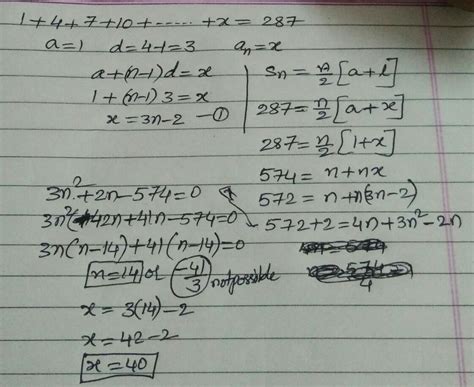 1+4+7+10+------+x=287
a=1 d=4-1=3 aₙ=x
a+(n-1)d=x
1+(n-1)3=x
x=3n-2 —①
Sₙ=n/2[a+l]
287=n/2[a+x]
287=n/2[1+x]
574=n+nx
572=n+n(3n-2)
572+2=4n+3n²-2n
3n²+2n-574=0
3n²-42n+41n-574=0
3n(n-14)+41(n-14)=0
n=14 or -41/3 not possible
x=3(14)-2
x=42-2
x=40